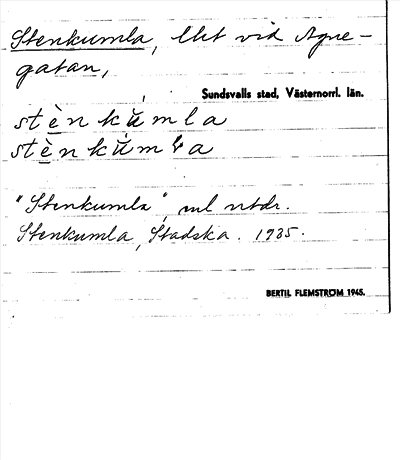 Stenkumla, Ubt vid Agne-
gatan,
Sundsvalls stad, Västernorrl. län.
stè̱nkŭmla
stè̱nkŭmɽa
"Stenkumla", ml utdr.
Stenkumla, Stadska. 1935.
BERTIL FLEMSTRÖM 1945.